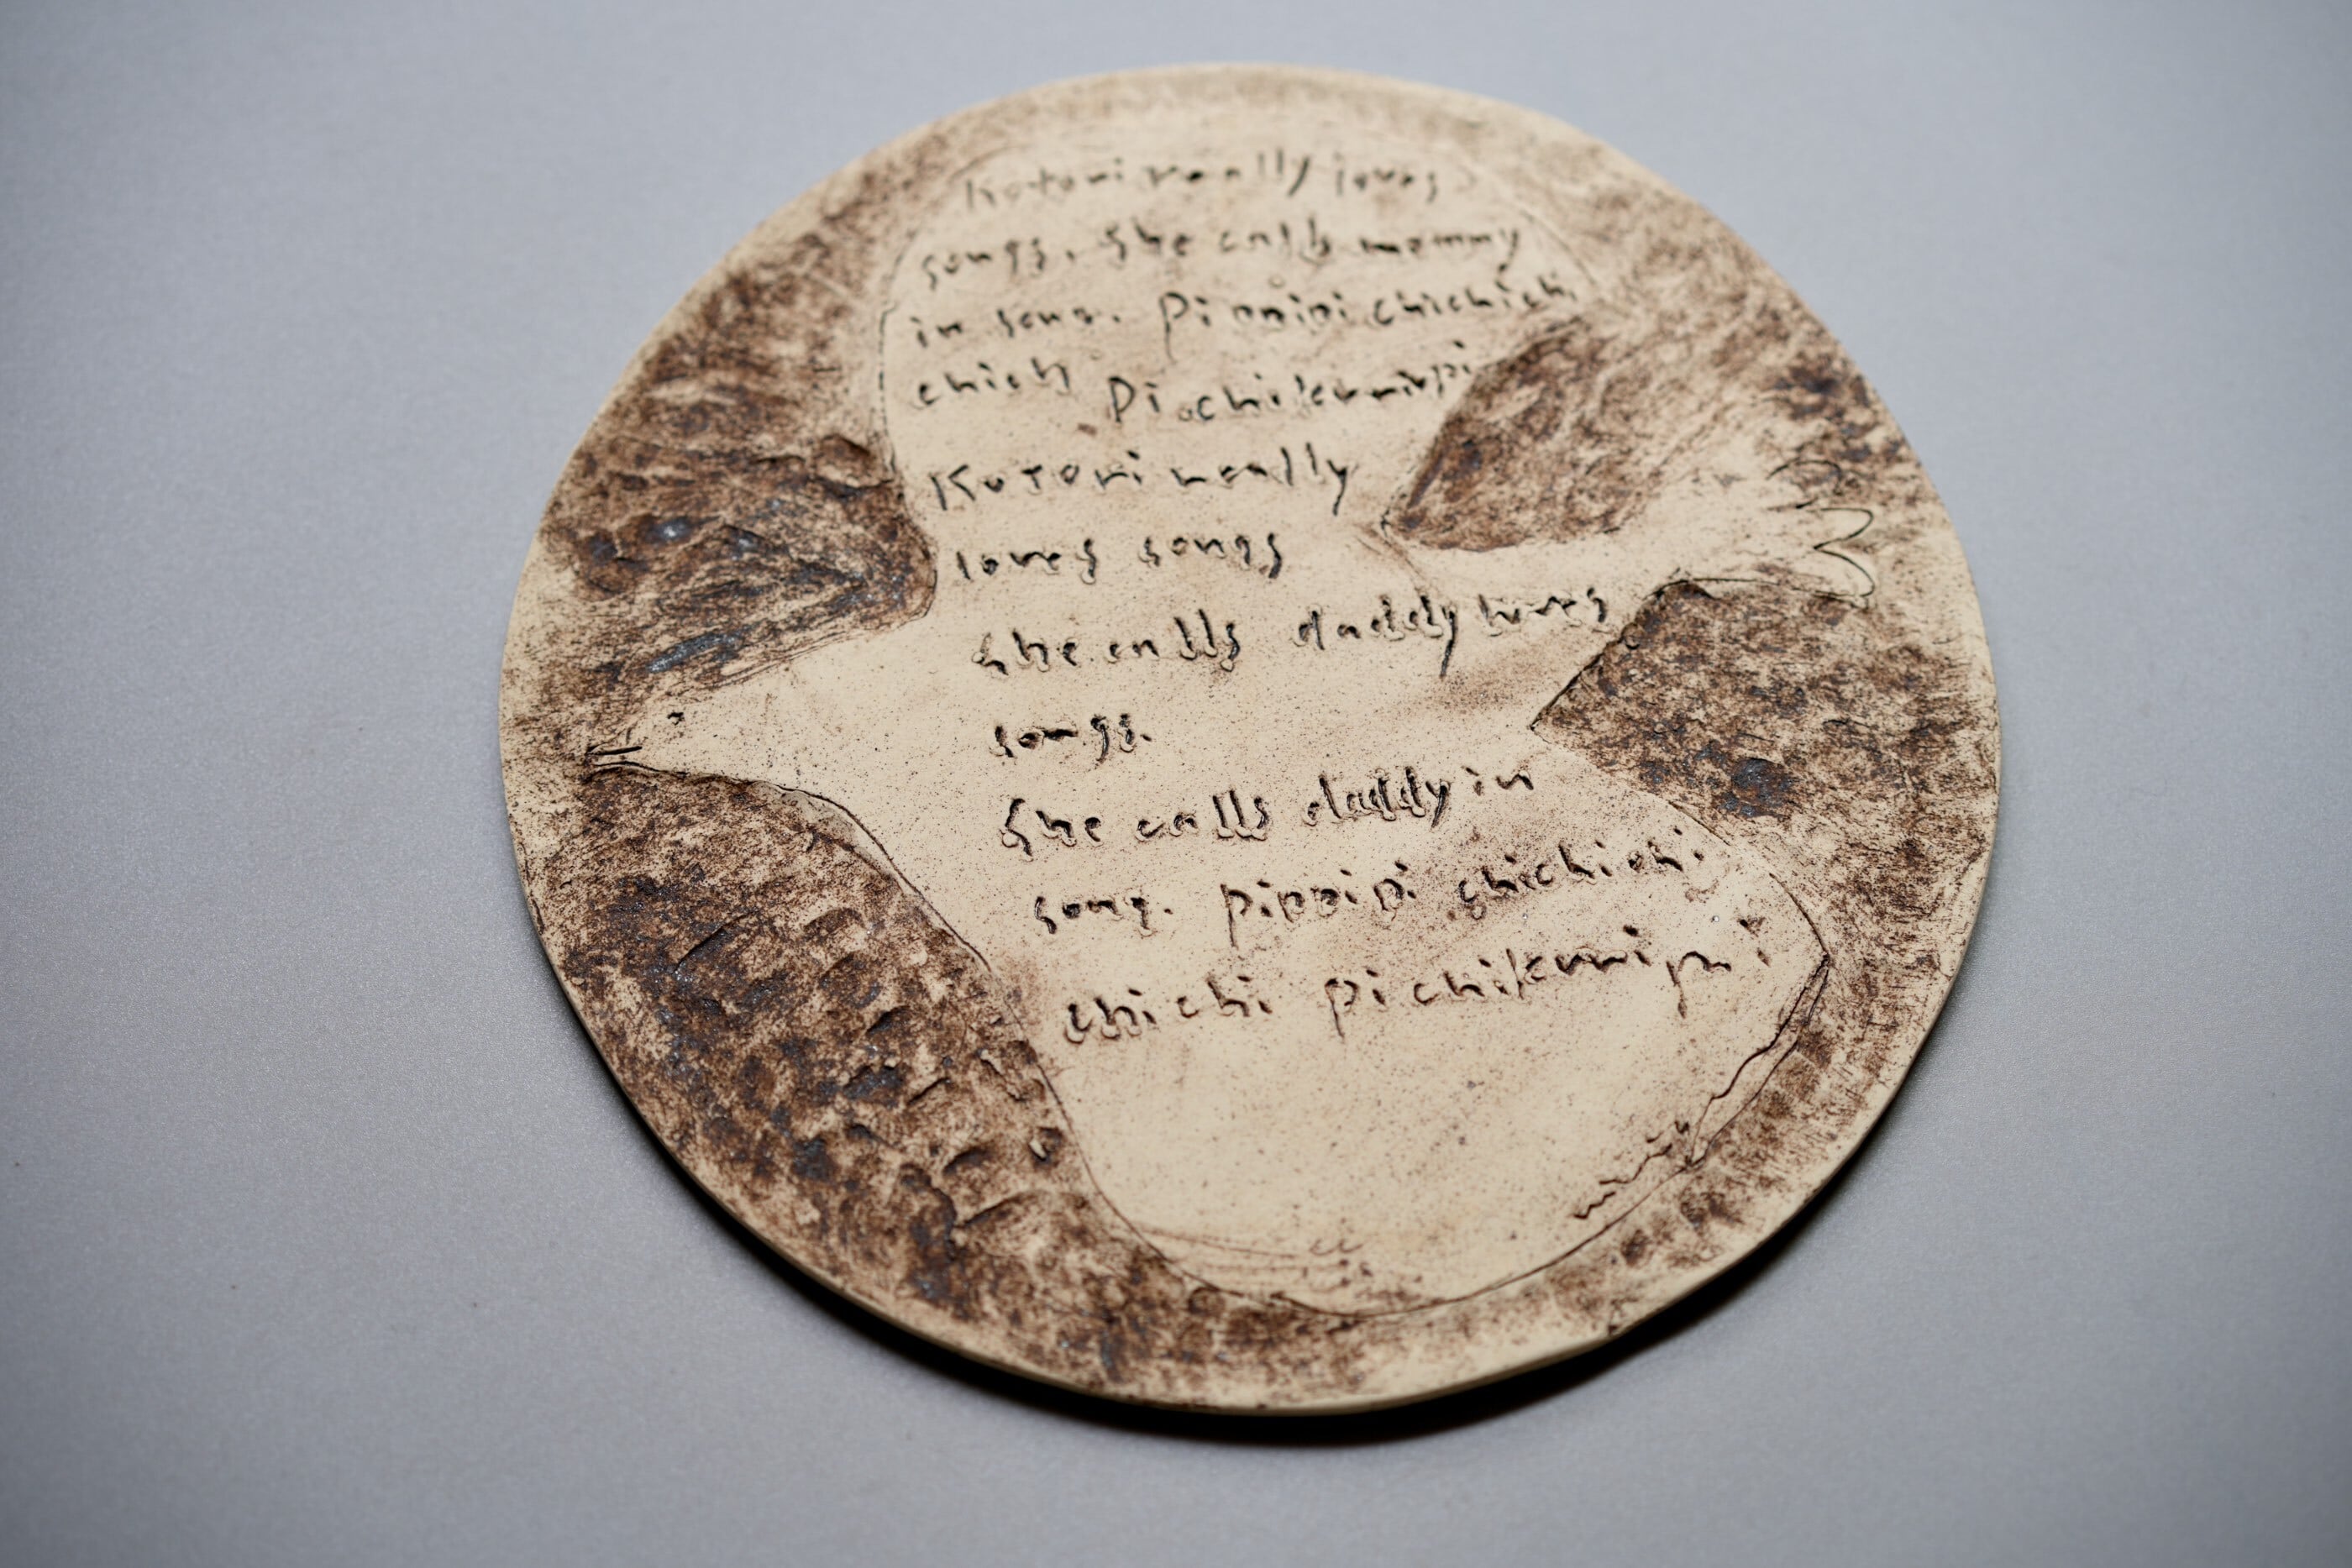 Kotori really loves
songs. She calls mommy
in song. Pi ppipi chichich
chichi Pi chikuripi
Kotori really
loves songs
She calls daddy loves
songs.
She calls daddy in
song. pippipi chichichi.
chichi pi chikuripi